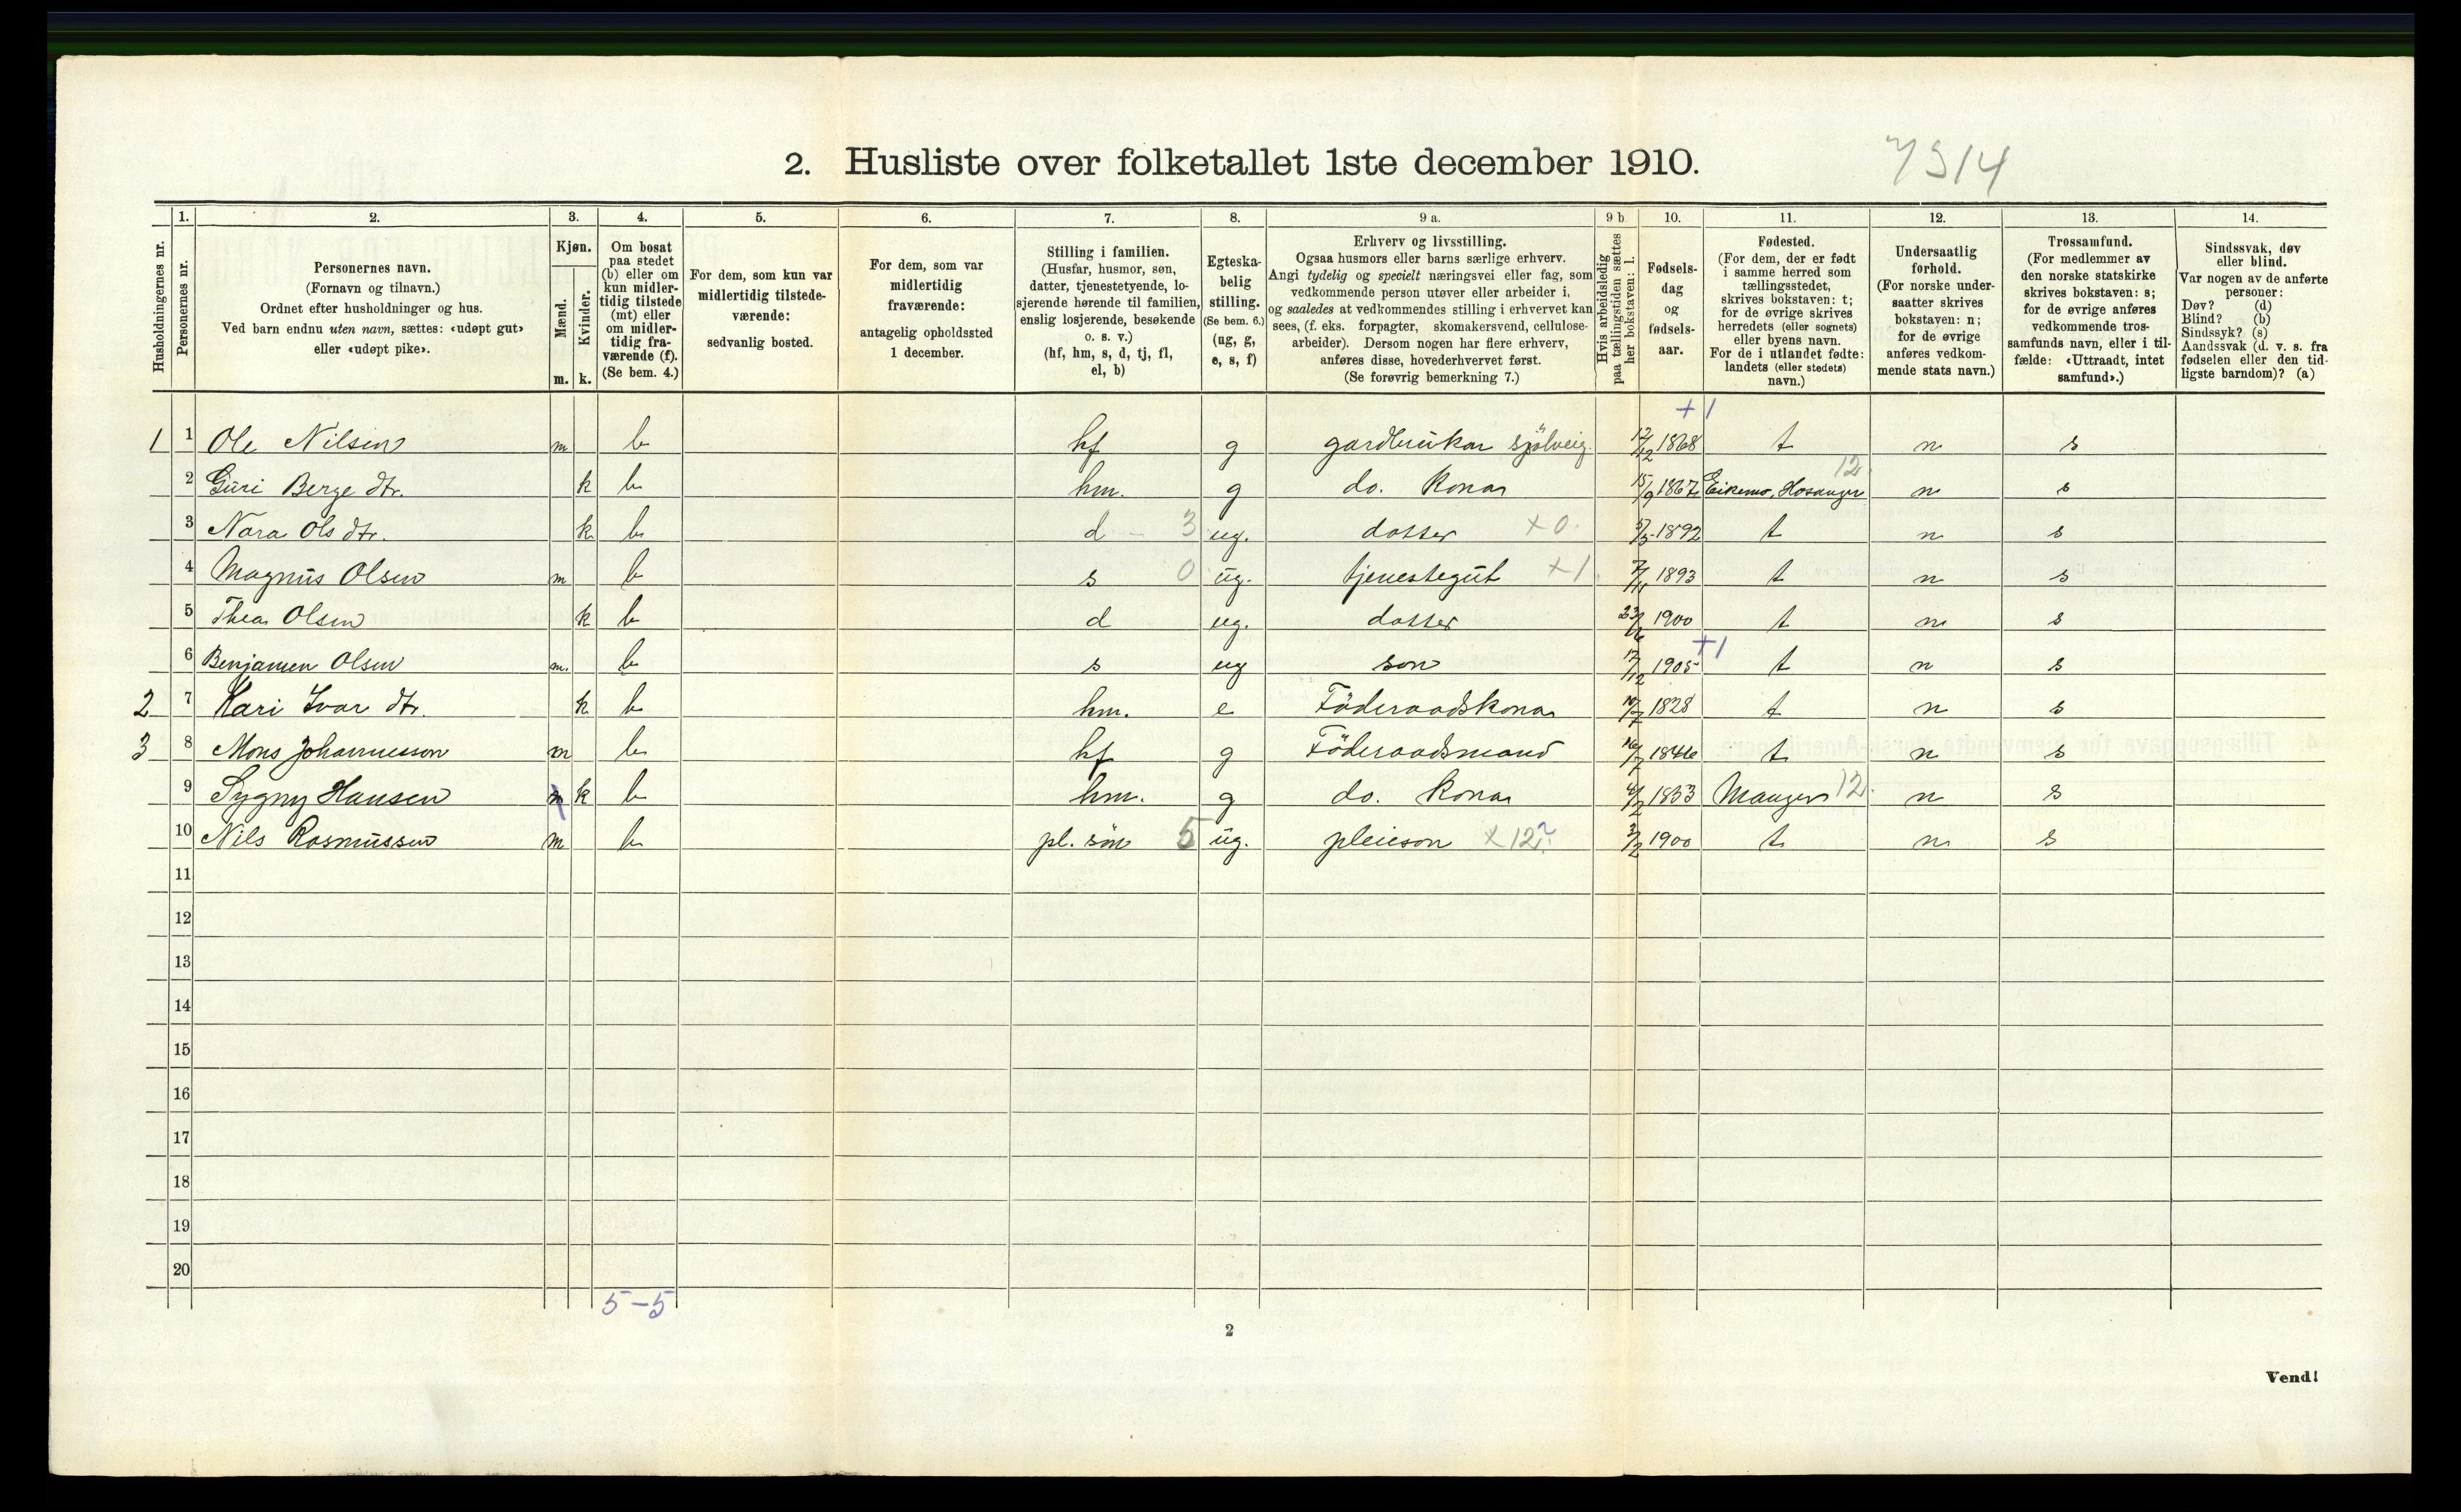 2. Husliste over folketallet 1ste december 1910.
7314
Husholdningernes nr.
1.
Personernes nr.
2.
Personernes navn.
(Fornavn og tilnavn.)
Ordnet efter husholdninger og hus.
Ved barn endnu uten navn, sættes: «udøpt gut»
eller «udøpt pike».
3.
Kjøn.
Mænd.
Kvinder.
m. k.
4.
Om bosat
paa stedet
(b) eller om
kun midler-
tidig tilstede
(mt) eller
om midler-
tidig fra-
værende (f).
(Se bem. 4.)
5.
For dem, som kun var
midlertidig tilstede-
værende:
sedvanlig bosted.
6.
For dem, som var
midlertidig
fraværende:
antagelig opholdssted
1 december.
7.
Stilling i familien.
(Husfar, husmor, søn,
datter, tjenestetyende, lo-
sjerende hørende til familien,
enslig losjerende, besøkende
o. s. v.)
(hf, hm, s, d, tj, fl,
el, b)
8.
Egteska-
belig
stilling.
(Se bem. 6.)
(ug, g,
e, s, f)
9 a.
Erhverv og livsstilling.
Ogsaa husmors eller barns særlige erhverv.
Angi tydelig og specielt næringsvei eller fag, som
vedkommende person utøver eller arbeider i,
og saaledes at vedkommendes stilling i erhvervet kan
sees, (f. eks. forpagter, skomakersvend, cellulose-
arbeider). Dersom nogen har flere erhverv,
anføres disse, hovederhvervet først.
(Se forøvrig bemerkning 7.)
9 b
Hvis arbeidsledig
paa tællingstiden sættes
her bokstaven: l.
10.
Fødsels-
dag
og
fødsels-
aar.
11.
Fødested.
(For dem, der er født
i samme herred som
tællingsstedet,
skrives bokstaven: t;
for de øvrige skrives
herredets (eller sognets)
eller byens navn.
For de i utlandet fødte:
landets (eller stedets)
navn.)
12.
Undersaatlig
forhold.
(For norske under-
saatter skrives
bokstaven: n;
for de øvrige
anføres vedkom-
mende stats navn.)
13.
Trossamfund.
(For medlemmer av
den norske statskirke
skrives bokstaven: s;
for de øvrige anføres
vedkommende tros-
samfunds navn, eller i til-
fælde: «Uttraadt, intet
samfund».)
14.
Sindssvak, døv
eller blind.
Var nogen av de anførte
personer:
Døv? (d)
Blind? (b)
Sindssyk? (s)
Aandssvak (d. v. s. fra
fødselen eller den tid-
ligste barndom)? (a)
+1
1 1 Ole Nilsen m b hf g gardbrukar sjölveig 12/12 1868 t n s
2 Guri Berge dtr. k b hm. g do. Kona 15/9 1867 Eikemo, Hosanger 12 n s
3 Nara Ols dtr. k b d 3 ug. dotter +0 1892 t n s
4 Magnus Olsen m b s 0 ug. tjenestegut +1 7/11 1893 t n s
5 Thea Olsen k b d ug. dotter 23/6 1900 t n s
6 Benjamen Olsen m. b s ug son 17/12 1905 +1 t n s
2 7 Kari Ivar dtr. k b hm. e Föderaadskona 1828 t n s
3 8 Mons Johannesson m b hf g Föderaadsmand 16/7 1846 t n s
9 Sygny Hansen m k b hm. g do. Kona 1833 Manger 12 n s
10 Nils Rasmussen m b pl. sön 5 ug. pleieson +12 ? 3/2 1900 t n s
11
12
13
14
15
16
17
18
19
20
5-5
2
Vend!